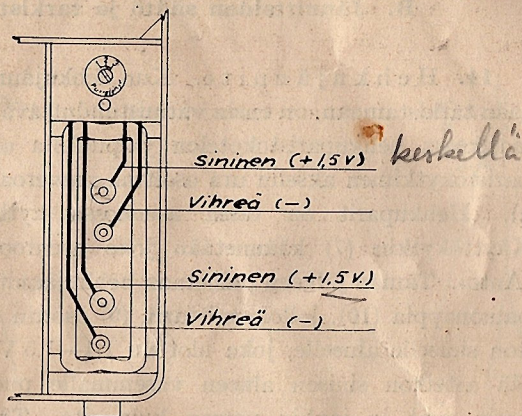 sininen (+1,5 v) keskellä
Vihreä (-)
sininen (+1.5 v.)
Vihreä (-)